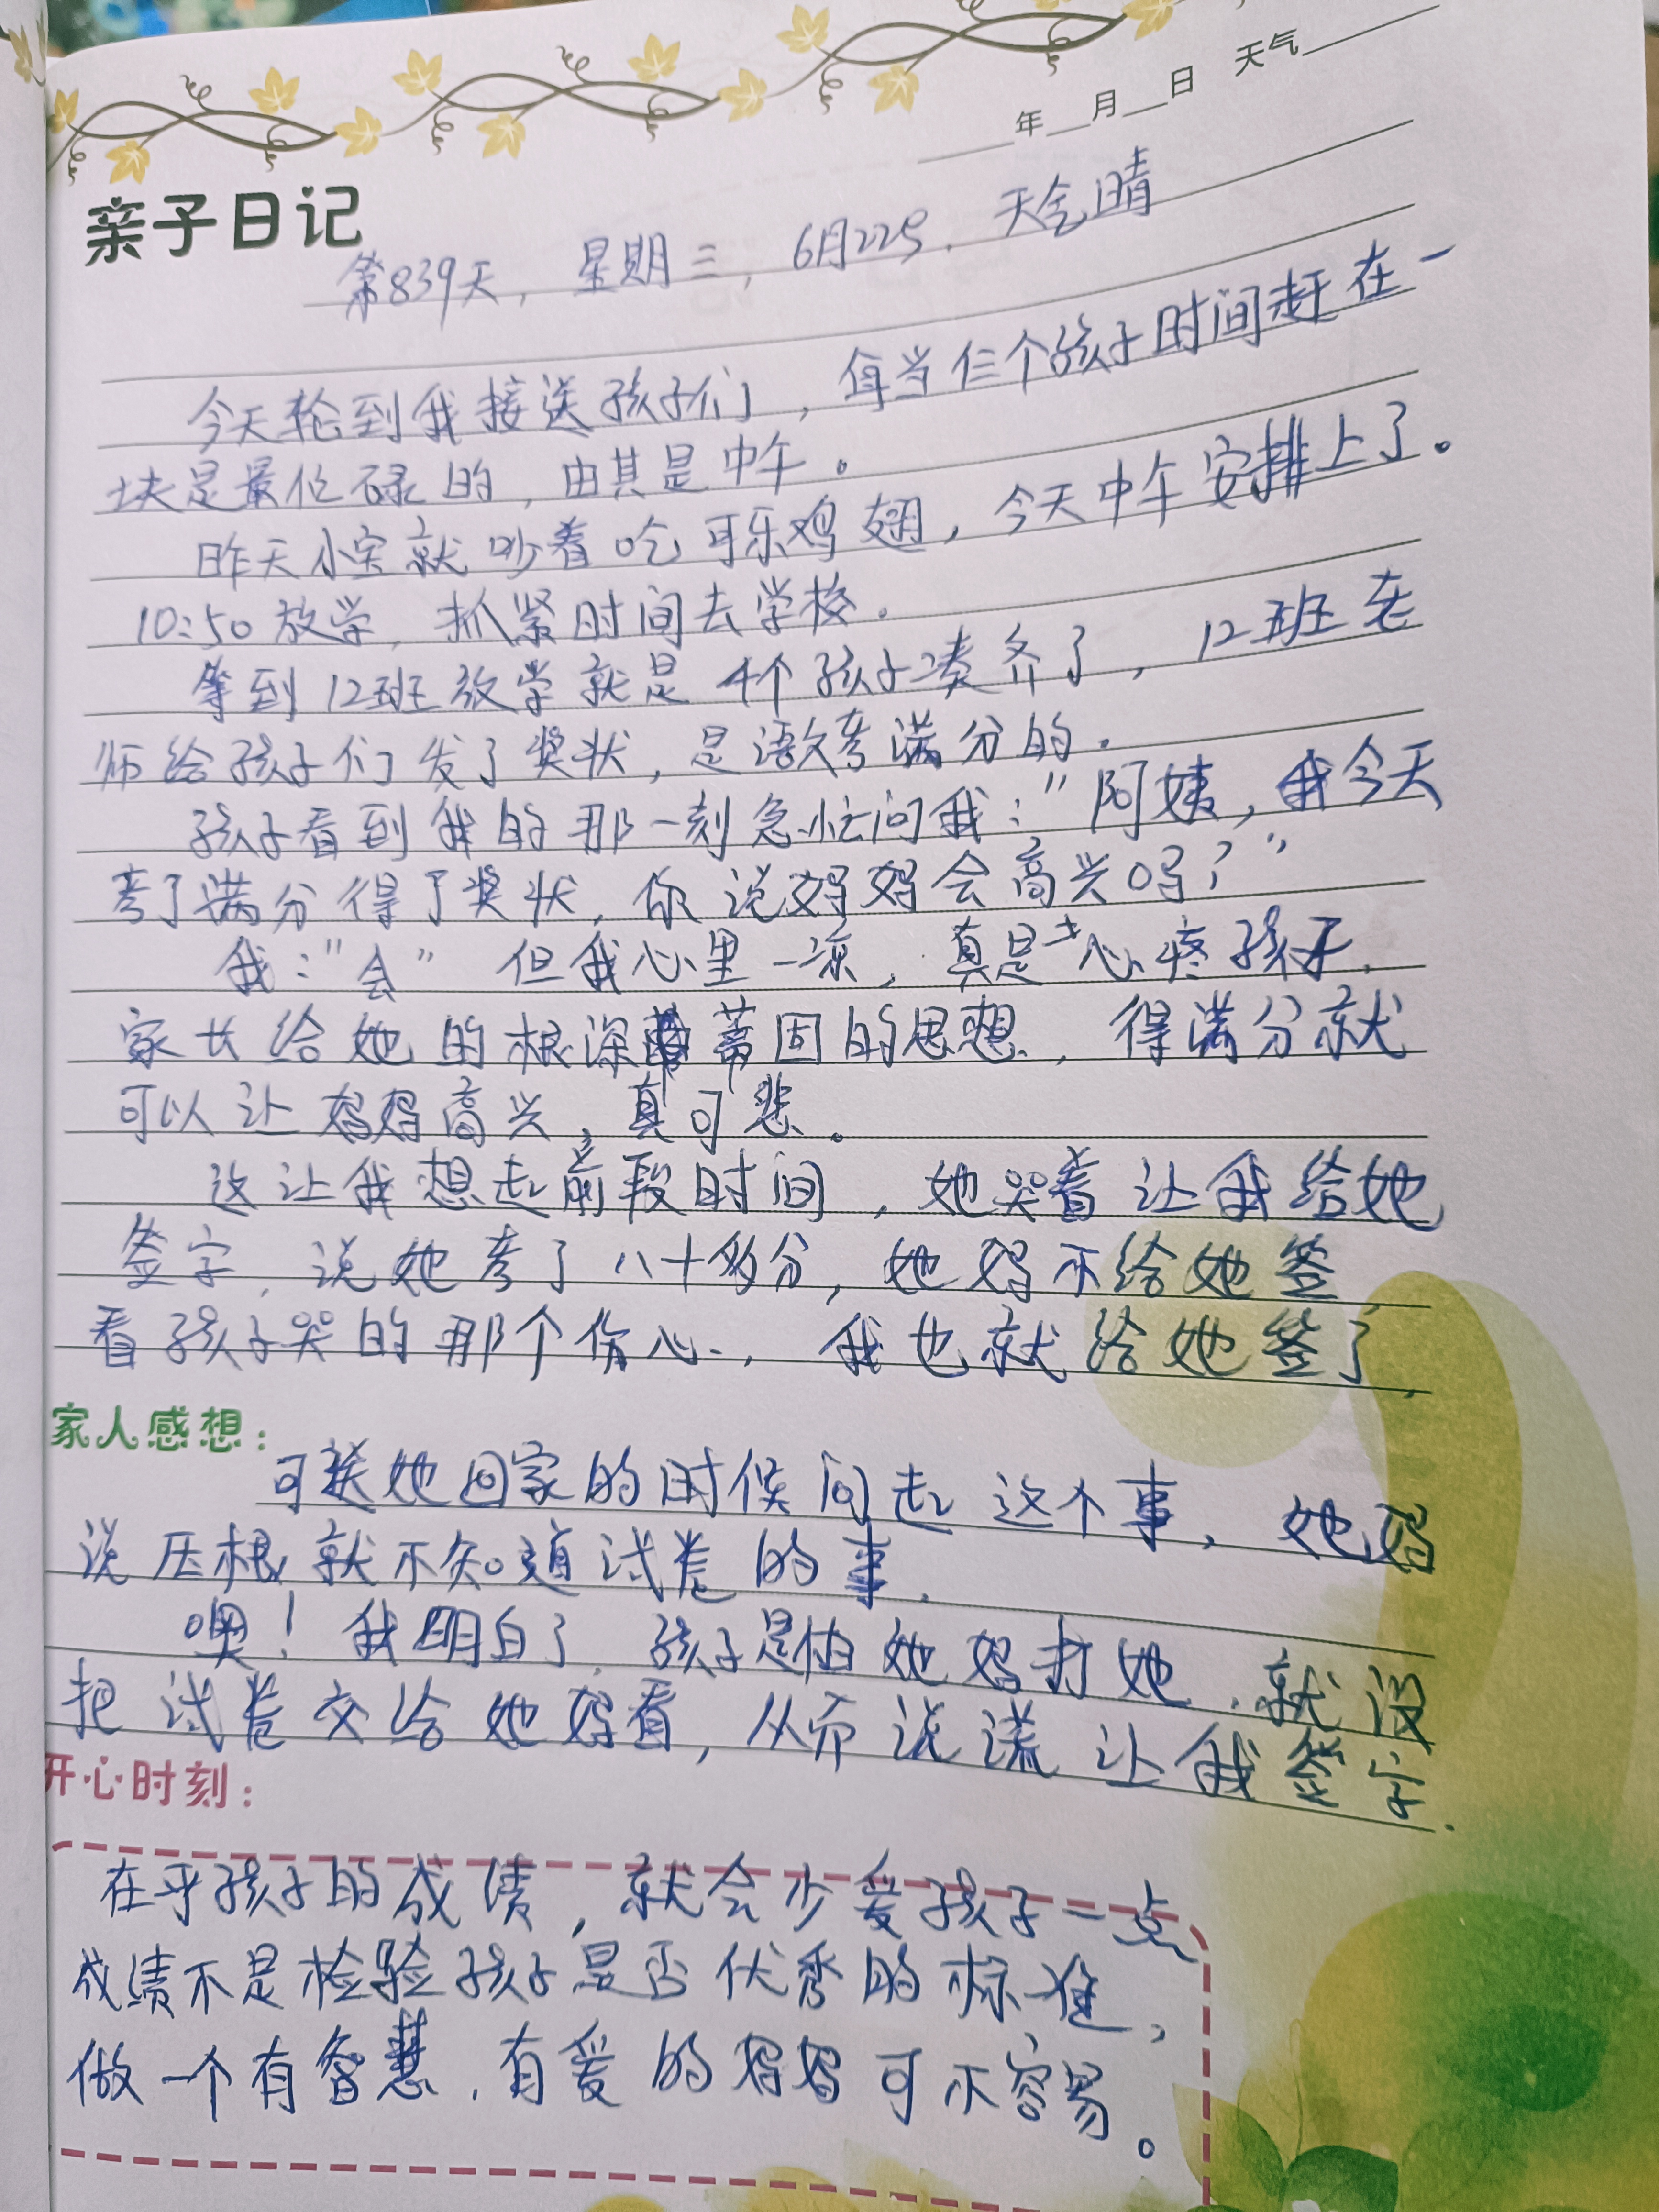 ____年__月__日 天气____
亲子日记
第839天，星期三，6月22号．天气晴
今天轮到我接送孩子们，每当仨个孩子时间赶在一
块是最忙碌的，由其是中午。
昨天小宝就吵着吃可乐鸡翅，今天中午安排上了。
10:50放学，抓紧时间去学校．
等到12班放学就是4个孩子凑齐了，12班老
师给孩子们发了奖状，是语文考满分的．
孩子看到我的那一刻急忙问我："阿姨，我今天
考了满分得了奖状，你说妈妈会高兴吗？"
我："会" 但我心里一凉，真是心疼孩子，
家长给她的根深蒂固的思想，得满分就
可以让妈妈高兴，真可悲。
这让我想起前段时间，她哭着让我给她
签字，说她考了八十多分，她妈不给她签
看孩子哭的那个伤心，我也就给她签了，
家人感想：
可送她回家的时候问起这个事，她妈
说压根就不知道试卷的事．
噢！我明白了，孩子是怕她妈打她，就没
把试卷交给她妈看，从而说谎让我签字．
开心时刻：
在乎孩子的成绩，就会少爱孩子一点
成绩不是检验孩子是否优秀的标准，
做一个有智慧，有爱的妈妈可不容易。